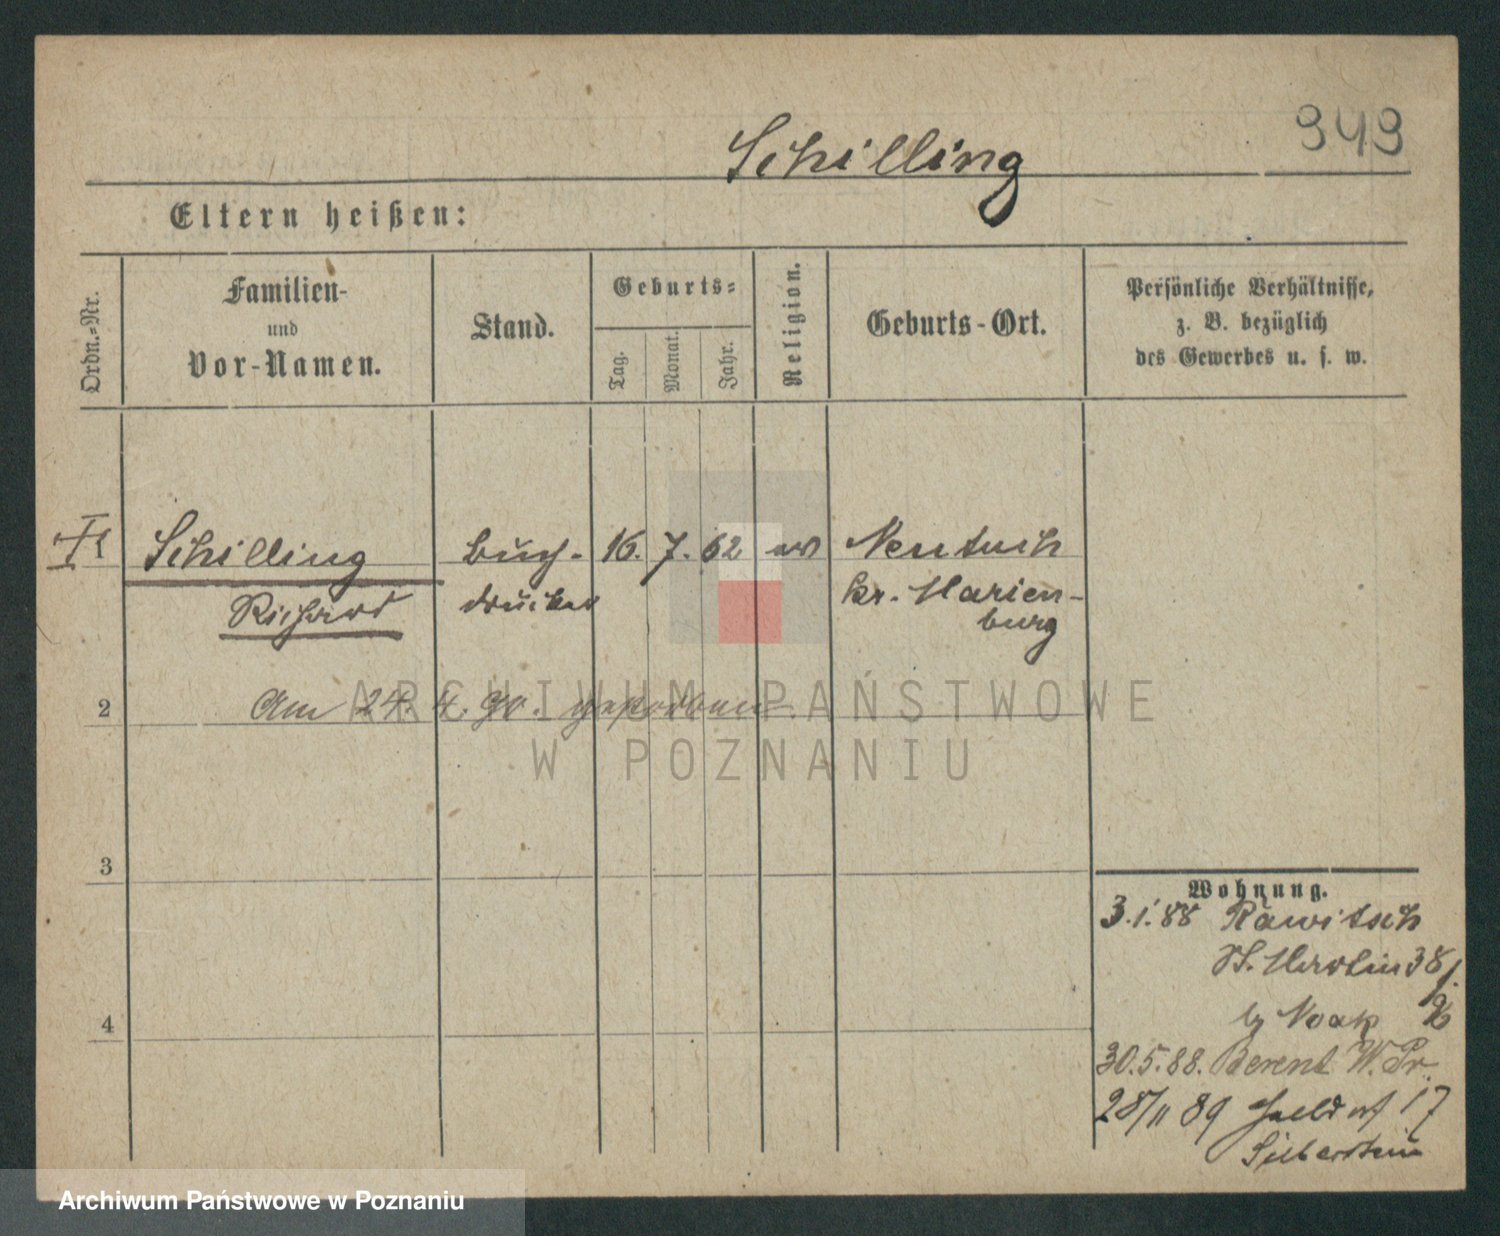 Schilling
949
Eltern heißen:
Ordn.-Nr.
Familien-
und
Vor-Namen.
Stand.
Geburts-
Tag.
Monat.
Jahr.
Religion.
Geburts-Ort.
Persönliche Verhältnisse,
z. B. bezüglich
des Gewerbes u. s. w.
Schilling Buch- 16. 7. 62 ev
Richard drucker
Kr. Marien-
burg
2 Am 24. 4. 90. gestorben.
3
4
Wohnung.
3.1.88 Rawitsch
St. Martin 38
b/ Noak
30.5.88. Berent W. Pr.
28/11 89 Halbdorf 17
Silberstein
ARCHIWUM PAŃSTWOWE
W POZNANIU
Archiwum Państwowe w Poznaniu